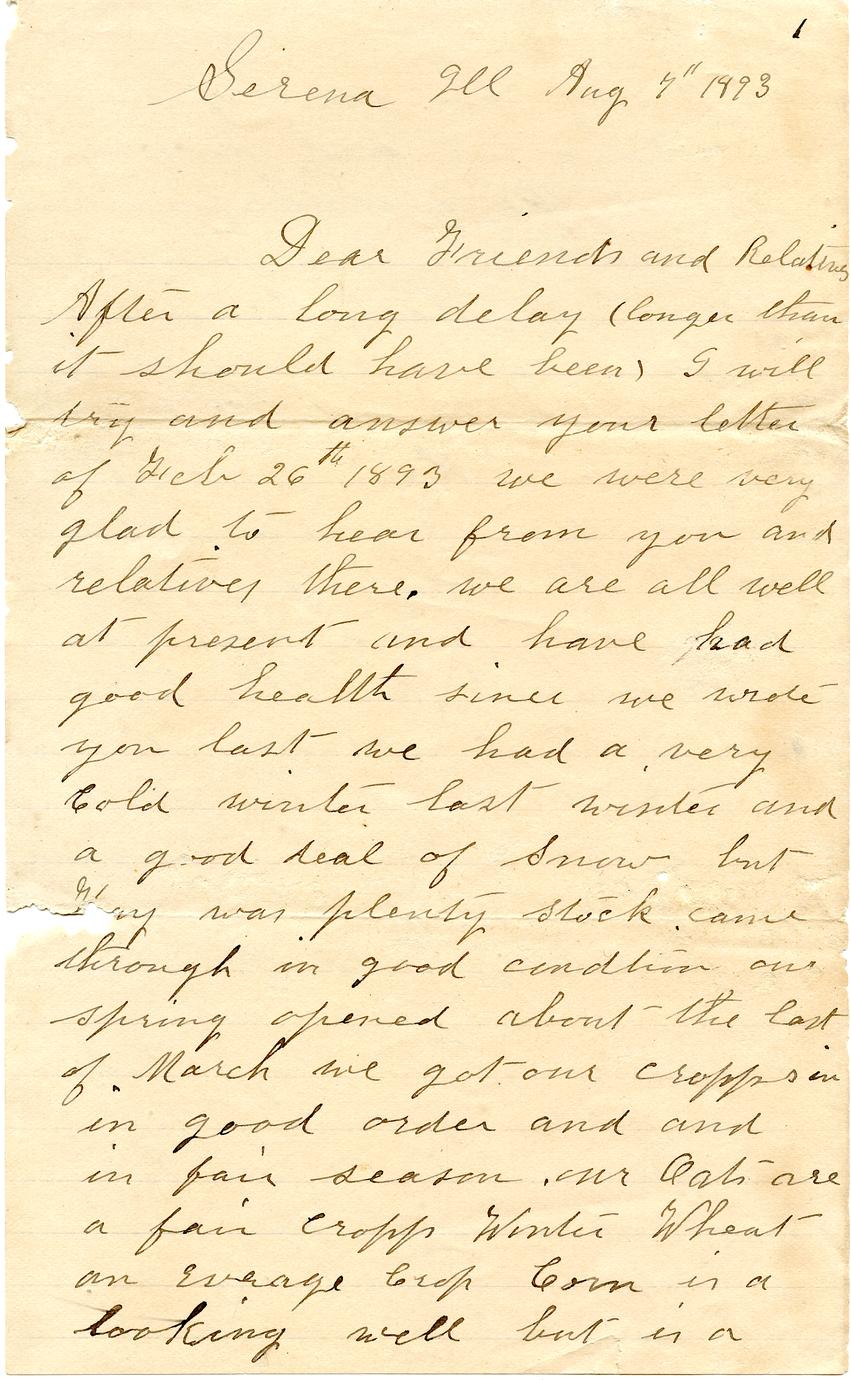 1
Serena Ill Aug 7" 1893
Dear Friends and Relatives
After a long delay (longer than
it should have been) I will
try and answer your letter
of Feb 26th 1893 we were very
glad to hear from you and
relatives there. we are all well
at present and have had
good health since we wrote
you last we had a very
Cold winter last winter and
a good deal of Snow but
Hay was plenty stock came
through in good condtion our
spring opened about the last
of March we got our cropps in
in good order and and
in fair season . our Oats are
a fair cropp Winter Wheat
an Everage Crop Corn is a
looking well but is a